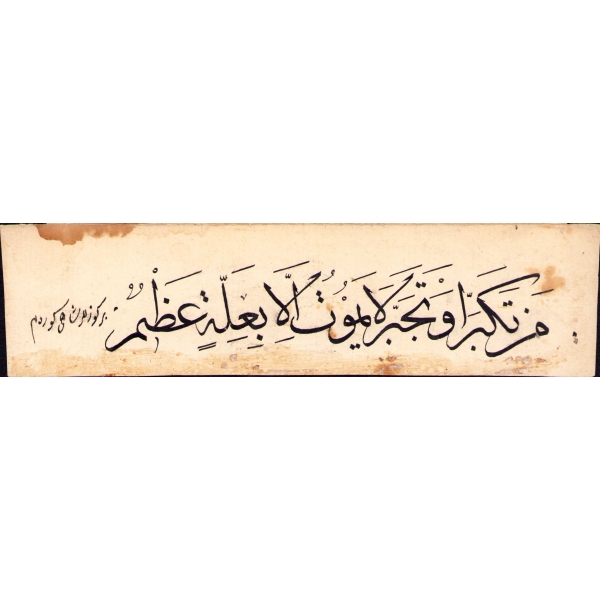 مَن تَكَبَّرا وْتَجَبَّر لَا يَمَوْتُ اَلَّا بِعِلَّةٍ عَظْيمٌ كوردم